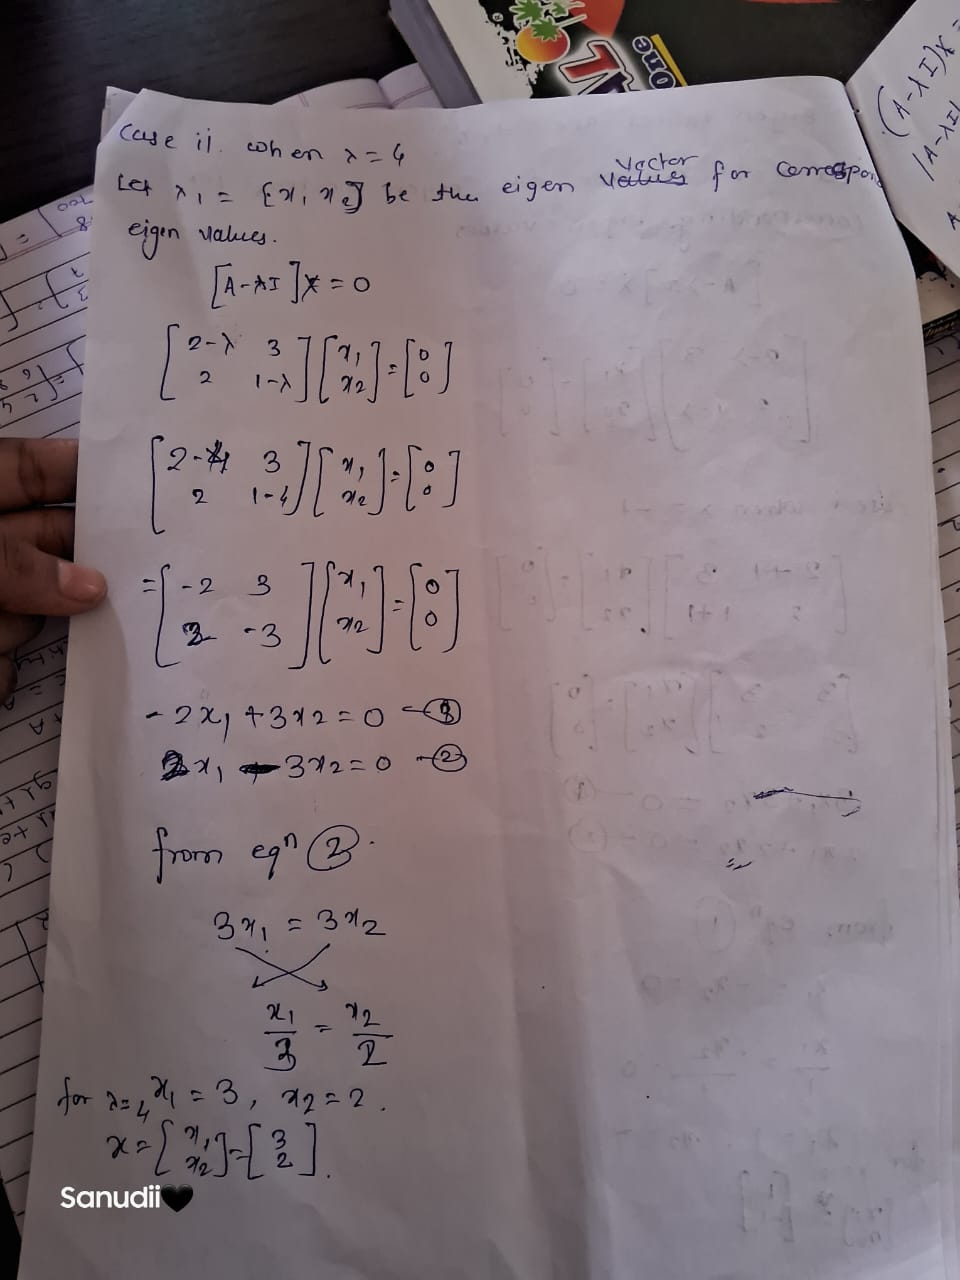 case ii. when λ = 4
Let λ₁ = [x₁ x₂] be the eigen vector for correspon
eigen values.
[A-λI]X = 0
[2-λ 3
2 1-λ] [x₁
x₂] = [0
0]
[2-4 3
2 1-4] [x₁
x₂] = [0
0]
= [-2 3
2 -3] [x₁
x₂] = [0
0]
-2x₁ + 3x2 = 0 - ①
2x₁ - 3x2 = 0 - ②
from eqⁿ ②.
3x₁ = 3x2
x₁/3 = x2/2
for λ=4 x₁ = 3, x2 = 2.
x = [x₁
x2] = [3
2].
Sanudii🖤
one
(A-λI)X =
|A-λI|